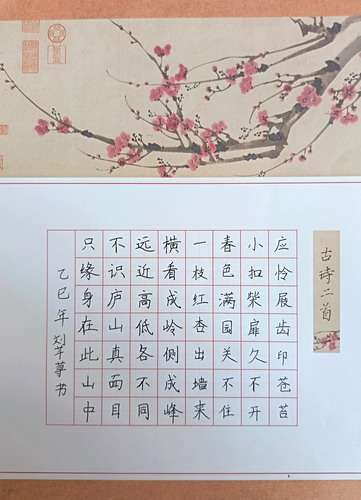 古诗二首
应怜屐齿印苍苔
小扣柴扉久不开
春色满园关不住
一枝红杏出墙来
横看成岭侧成峰
远近高低各不同
不识庐山真面目
只缘身在此山中
乙巳年刘芊葶书